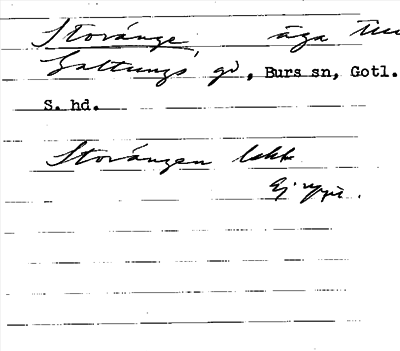 Storänge, äga till
Gattungs gd, Burs sn, Gotl.
S. hd.
Storängen lokk
Ej uppt.